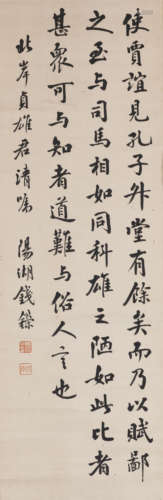 使賈誼見孔子升堂有餘矣而乃以賦鄙
之至与司馬相如同科雄之陋如此比者
甚衆可与知者道難与俗人言也
北岸貞雄君清囑 陽湖錢鑅